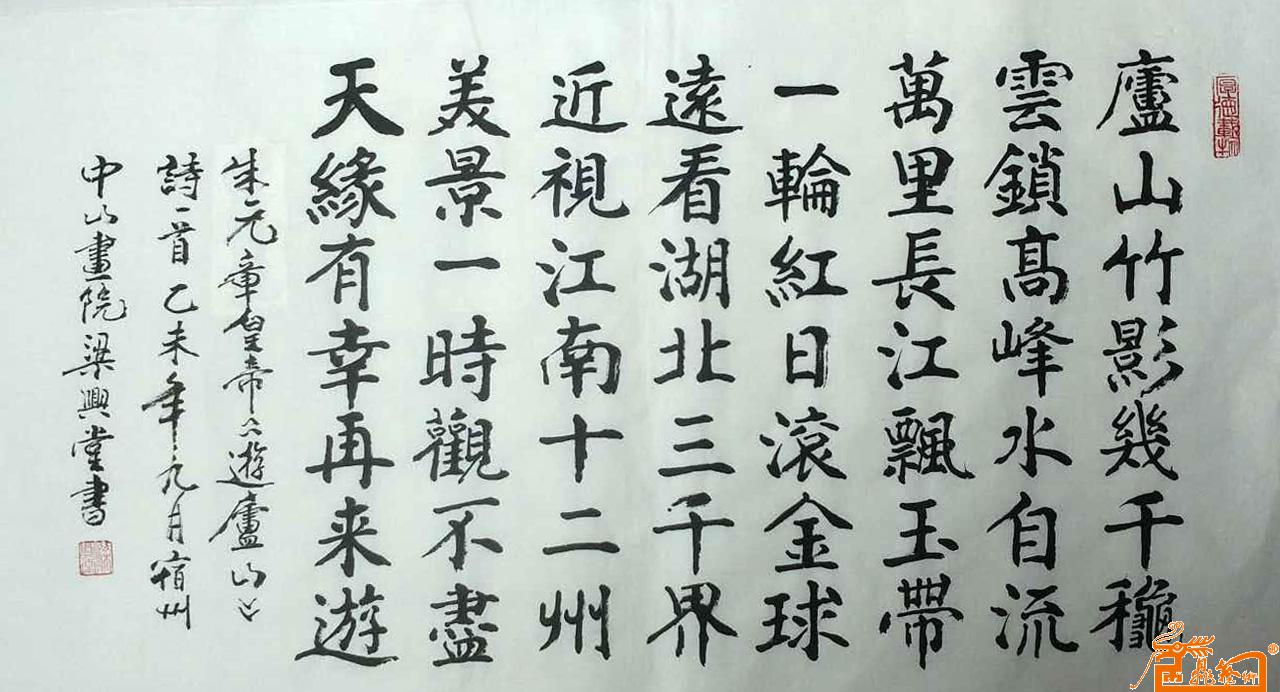 廬山竹影幾千穐
雲鎖髙峰水自流
萬里長江飄玉帶
一輪紅日滾金球
遠看湖北三千界
近視江南十二州
美景一時觀不盡
天緣有幸再来游
朱元章皇帝《遊廬山》
詩一首乙未年九月宿州
中山畫院梁興堂書